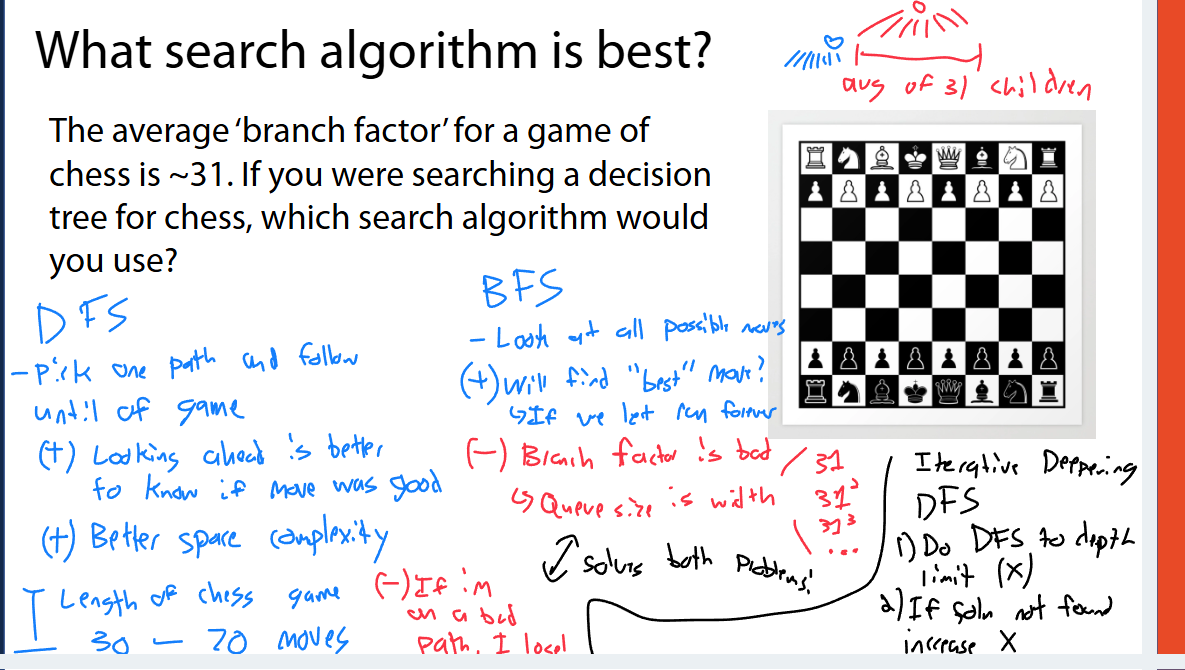 What search algorithm is best?
avg of 31 children
The average ‘branch factor’ for a game of
chess is ~31. If you were searching a decision
tree for chess, which search algorithm would
you use?
DFS
- Pick one path and follow
until of game
(+) Looking ahead is better
to know if move was good
(+) Better space complexity
Length of chess game
30 — 70 moves
(-) If im
on a bad
path, I lose!
BFS
- Look at all possible moves
(+) Will find "best" move?
↳ If we let run forever
(-) Branch factor is bad
↳ Queue size is width
31
31²
31³
...
solves both problems!
Iterative Deepening
DFS
1) Do DFS to depth
limit (X)
2) If soln not found
increase X